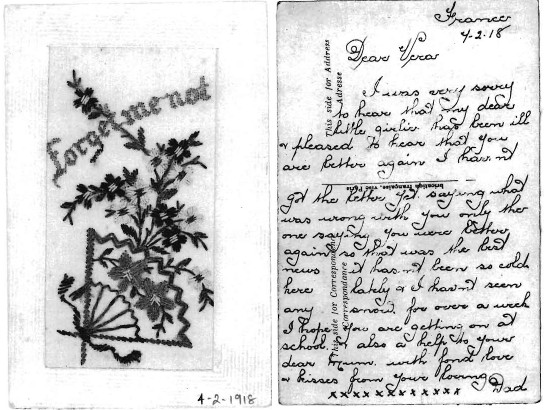 forget me not
4-2-1918
France
4.2.18
Dear Vera
I was very sorry
to hear that my dear
little girlie has been ill
& pleased to hear that you
are better again I havnt
got the letter yet, saying what
was wrong with you only the
one saying you were better
again so that was the best
news it hasnt been so cold
here lately & I havnt seen
any snow for over a week
I hope you are getting on at
school, & also a help to your
dear Mum, with fond love
& kisses from your loving Dad
xxxxxxxxxxx
This side for Address
Adresse
brication française, visé Paris
This side for Correspondence
Correspondance